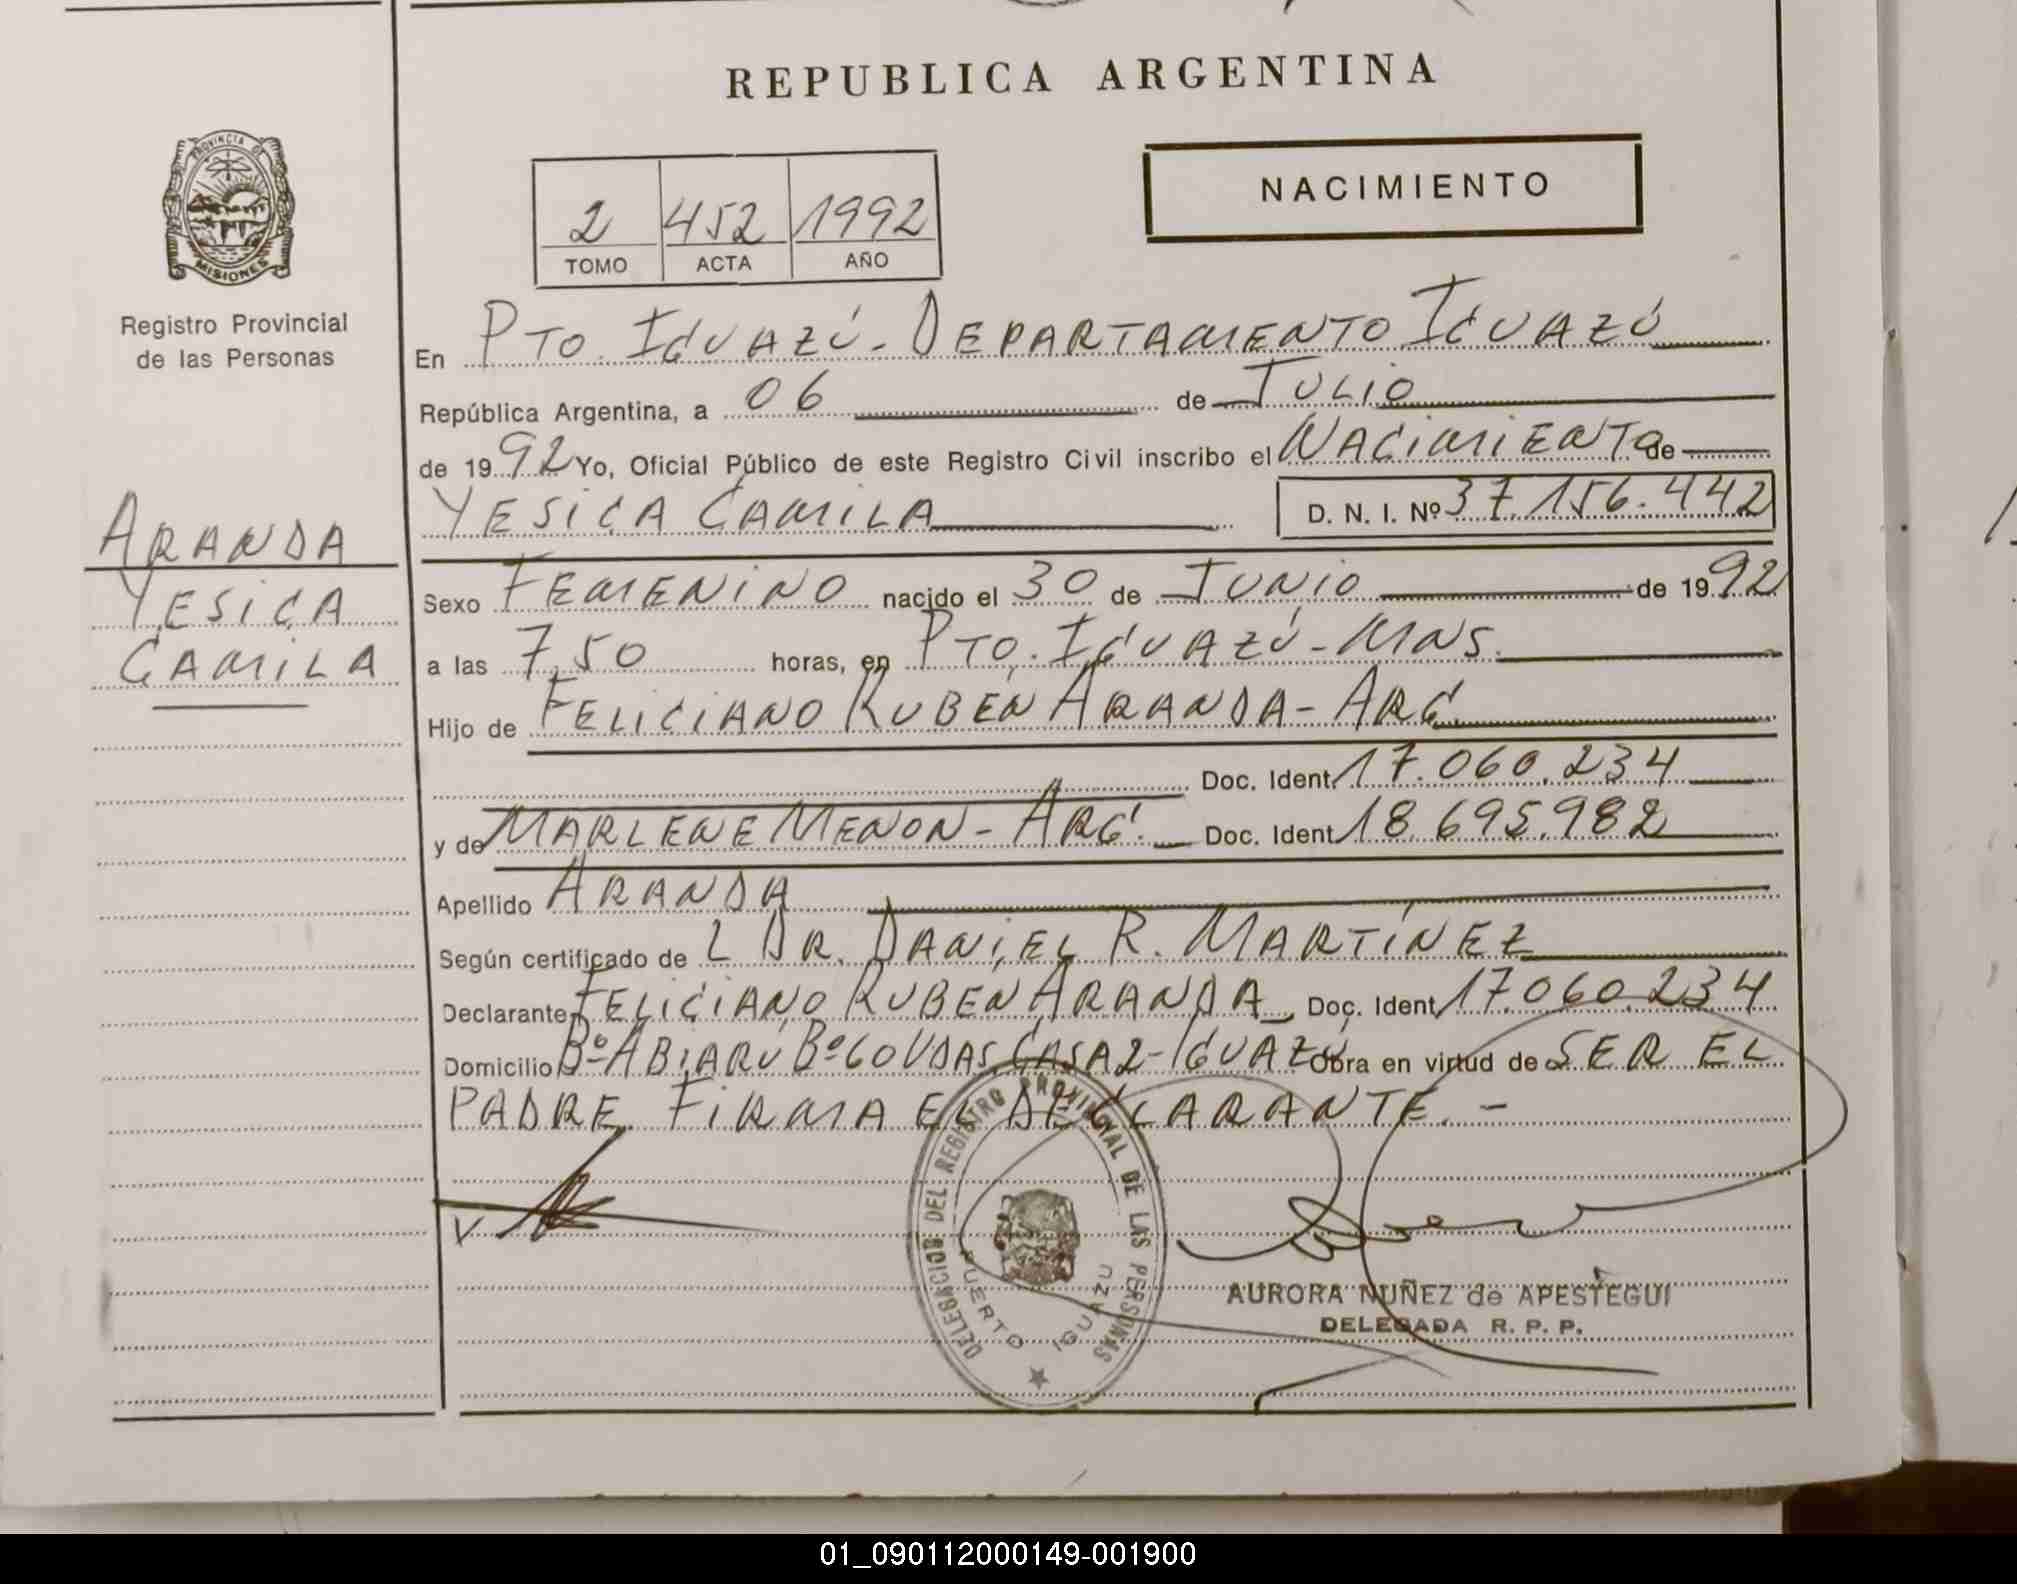 REPUBLICA ARGENTINA
PROVINCIA DE
MISIONES
Registro Provincial
de las Personas
NACIMIENTO
2 452 1992
TOMO ACTA AÑO
ARANDA
YESICA
CAMILA
En PTO. IGUAZÚ - DEPARTAMENTO IGUAZÚ
República Argentina, a 06 de JULIO
de 1992 Yo, Oficial Público de este Registro Civil inscribo el NACIMIENTO de
YESICA CAMILA D. N. I. Nº 37.156.442
Sexo FEMENINO nacido el 30 de JUNIO de 1992
a las 7,50 horas, en PTO. IGUAZÚ - MNS.
Hijo de FELICIANO RUBEN ARANDA - ARG.
Doc. Ident. 17.060.234
y de MARLENE MENON - ARG. Doc. Ident. 18.695.982
Apellido ARANDA
Según certificado de L DR. DANIEL R. MARTÍNEZ
Declarante FELICIANO RUBEN ARANDA Doc. Ident. 17.060.234
Domicilio Bº ABIARÚ Bº 60 VDAS. CASA 2 - IGUAZÚ Obra en virtud de SER EL
PADRE. FIRMA EL DECLARANTE. -
DELEGACION DEL REGISTRO PROVINCIAL DE LAS PERSONAS
PUERTO IGUAZU
AURORA NUÑEZ de APESTEGUI
DELEGADA R. P. P.
01_090112000149-001900